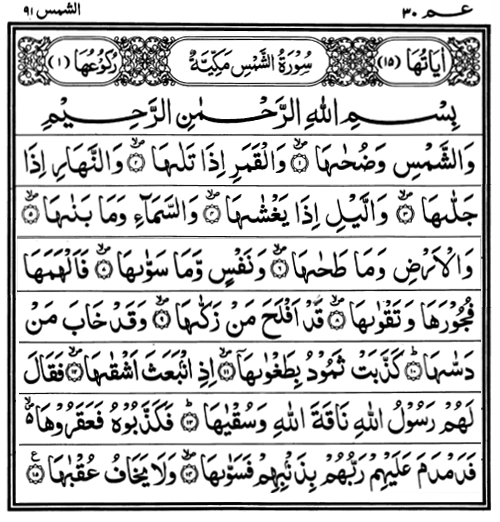 عـم ٣٠ الشمس ٩١
اٰيَاتُهَا (١٥) سُوْرَةُ الشَّمْسِ مَكِّيَّةٌ رُكُوْعُهَا (١)
بِسْمِ اللّٰهِ الرَّحْمٰنِ الرَّحِيْمِ
وَالشَّمْسِ وَضُحٰىهَا ۙ﴿١﴾ وَالْقَمَرِ اِذَا تَلٰىهَا ۙ﴿٢﴾ وَالنَّهَارِ اِذَا
جَلّٰىهَا ۙ﴿٣﴾ وَالَّيْلِ اِذَا يَغْشٰىهَا ۙ﴿٤﴾ وَالسَّمَآءِ وَمَا بَنٰىهَا ۙ﴿٥﴾
وَالْاَرْضِ وَمَا طَحٰىهَا ۙ﴿٦﴾ وَنَفْسٍ وَّمَا سَوّٰىهَا ۙ﴿٧﴾ فَاَلْهَمَهَا
فُجُوْرَهَا وَتَقْوٰىهَا ۙ﴿٨﴾ قَدْ اَفْلَحَ مَنْ زَكّٰىهَا ۙ﴿٩﴾ وَقَدْ خَابَ مَنْ
دَسّٰىهَا ؕ﴿١٠﴾ كَذَّبَتْ ثَمُوْدُ بِطَغْوٰىهَاۤ ۙ﴿١١﴾ اِذِ انْۢبَعَثَ اَشْقٰىهَا ۙ﴿١٢﴾ فَقَالَ
لَهُمْ رَسُوْلُ اللّٰهِ نَاقَةَ اللّٰهِ وَسُقْيٰهَا ؕ﴿١٣﴾ فَكَذَّبُوْهُ فَعَقَرُوْهَا ۙ
فَدَمْدَمَ عَلَيْهِمْ رَبُّهُمْ بِذَنْۢبِهِمْ فَسَوّٰىهَا ۙ﴿١٤﴾ وَلَا يَخَافُ عُقْبٰهَا ﴿١٥﴾ ع